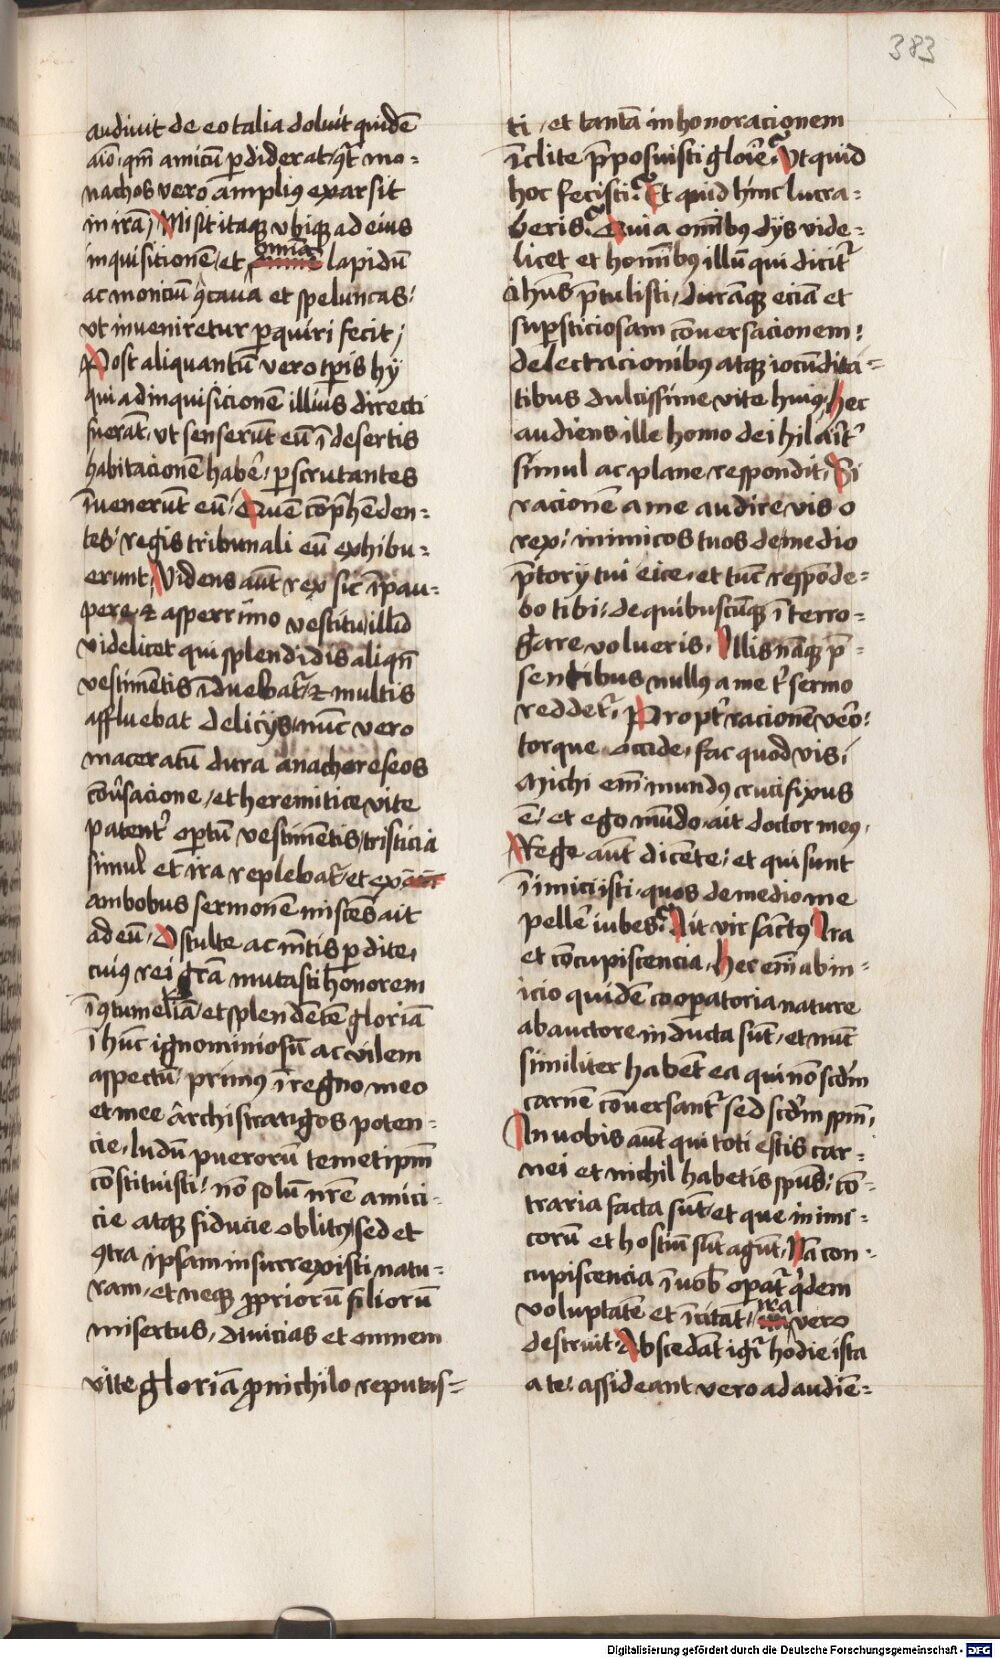 383
audiuit de eo talia doluit quidē
aīo, qm̄ amicū ꝑdiderat, qt᷑ mo⸗
nachos vero amplius exarsit
in irā, Misit itaqꝫ vbiqꝫ ad eius
inquisicionē, et omnia lapidū
ac monciū ꝯcaua et speluncas,
vt inueniretur ꝑquiri fecit,
Post aliquantū vero tꝑis hy
qui ad inquisicionē illius directi
fuerāt, vt senserūt eū ī desertis
habitacionē habe᷑, ꝑscrutantes
īuenerūt eū, Quē cōp̄hēden⸗
tes, regis tribunali eū exhibu⸗
erunt, Videns aūt rex sic ī pau⸗
pere et asperrimo vestitu illū
videlicet qui splendidis aliqn̄
vestimētis īduebat᷑, et multis
affluebat delicijs, nūc vero
maceratū dura anachoreseos
cōu᷑sacione, et heremitice vite
patent᷑ opertū vestimētis, tristicia
simul et ira replebat᷑, et ex
ambobus sermonē miscēs ait
ad eū, O stulte ac mētis ꝑdite,
cuius rei gr̄a mutasti honorem
ī ꝯtumeliā, et splendētē gloriā
ī hūc ignominiosū ac vilem
aspectū, primus ī regno meo
et mee archistratigos poten⸗
cie, ludū puerorū temetipm̄
cōstituisti, nō solū nr̄e amici⸗
cie atqꝫ fiducie oblitus, sed et
ꝯtra ipsam insurrexisti natu⸗
ram, et neqꝫ ꝓpriorū filiorū
misertus, diuicias et omnem
vite gloriā ꝓ nichilo reputas⸗
ti, et tantā inhonoracionem
īclite p̄posuisti glorie, Vt quid
hoc fecisti, Et quid hinc lucra⸗
beris, Quia om̄ibus dijs vide⸗
licet et hom̄ibus illū qui dicit᷑
ihūs p̄tulisti, durāqꝫ eciā et
suꝑsticiosam cōuersacionem,
delectacionibus atqꝫ iocūdita⸗
tibus dulcissime vite huius, hec
audiens ille homo dei hilarit᷑
simul ac plane respondit, Si
racionē a me audire vis o
rex, inimicos tuos de medio
p̄torij tui eice, et tūc respōde⸗
bo tibi, de quibuscūqꝫ īterro⸗
gare volueris, Illis nāqꝫ p̄⸗
sentibus nullus a me t᷑ sermo
reddet᷑, Propt᷑ racionē vero,
torque occide, fac quod vis,
Michi em̄ mundus crucifixus
ē, et ego mūdo, ait doctor meus,
Rege aūt dicēte, et qui sunt
īimici isti, quos de medio me
pellē iubes, Ait vir sāctus, Ira
et cōcupiscencia, hec em̄ ab in⸗
icio quidē cooperatoria nature
ab auctore inducta sūt, et nūc
similiter habēt ea qui nō scd̄m
carnē cōuersant᷑, sed scd̄m spm̄,
In vobis aūt qui toti estis car⸗
nei et nichil habetis spūs, cō⸗
traria facta sūt, et que inimi⸗
corū et hostiū sūt agūt, Nā con⸗
cupiscencia ī vob̄ operat᷑ q̄dem
voluptatē et īcitat, ira vero
destruit, Abscedāt igi᷑ hodie ista
a te, assideant vero ad audiē⸗
Digitalisierung gefördert durch die Deutsche Forschungsgemeinschaft - DFG